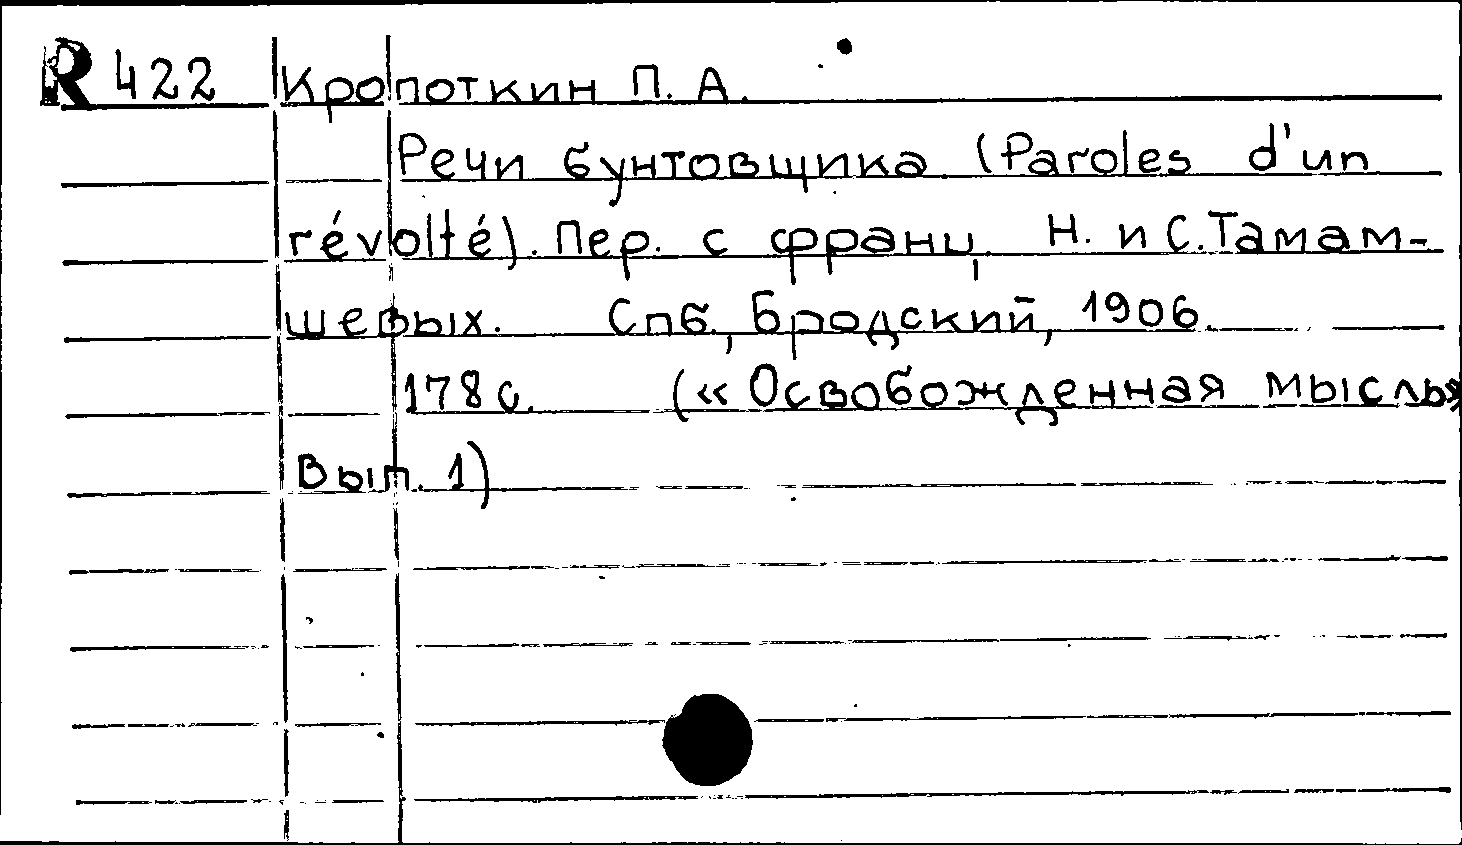 R 422 Кропоткин П. А.
Речи бунтовщика (Paroles d'un
révolté). Пер. с франц. Н. и С. Тамам-
шевых. Спб., Бродский, 1906.
178 с. (« Освобожденная мысль»
Вып. 1)